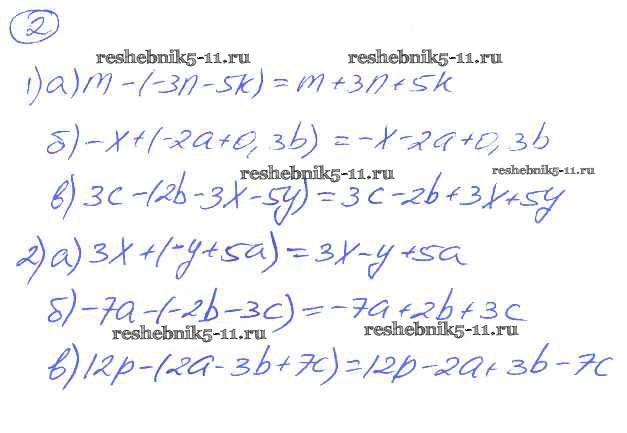 2
reshebnik5-11.ru reshebnik5-11.ru
1) а) m - (-3n - 5k) = m + 3n + 5k
б) -x + (-2a + 0,3b) = -x - 2a + 0,3b
reshebnik5-11.ru reshebnik5-11.ru
в) 3c - (2b - 3x - 5y) = 3c - 2b + 3x + 5y
2) а) 3x + (-y + 5a) = 3x - y + 5a
б) -7a - (-2b - 3c) = -7a + 2b + 3c
reshebnik5-11.ru reshebnik5-11.ru
в) 12p - (2a - 3b + 7c) = 12p - 2a + 3b - 7c